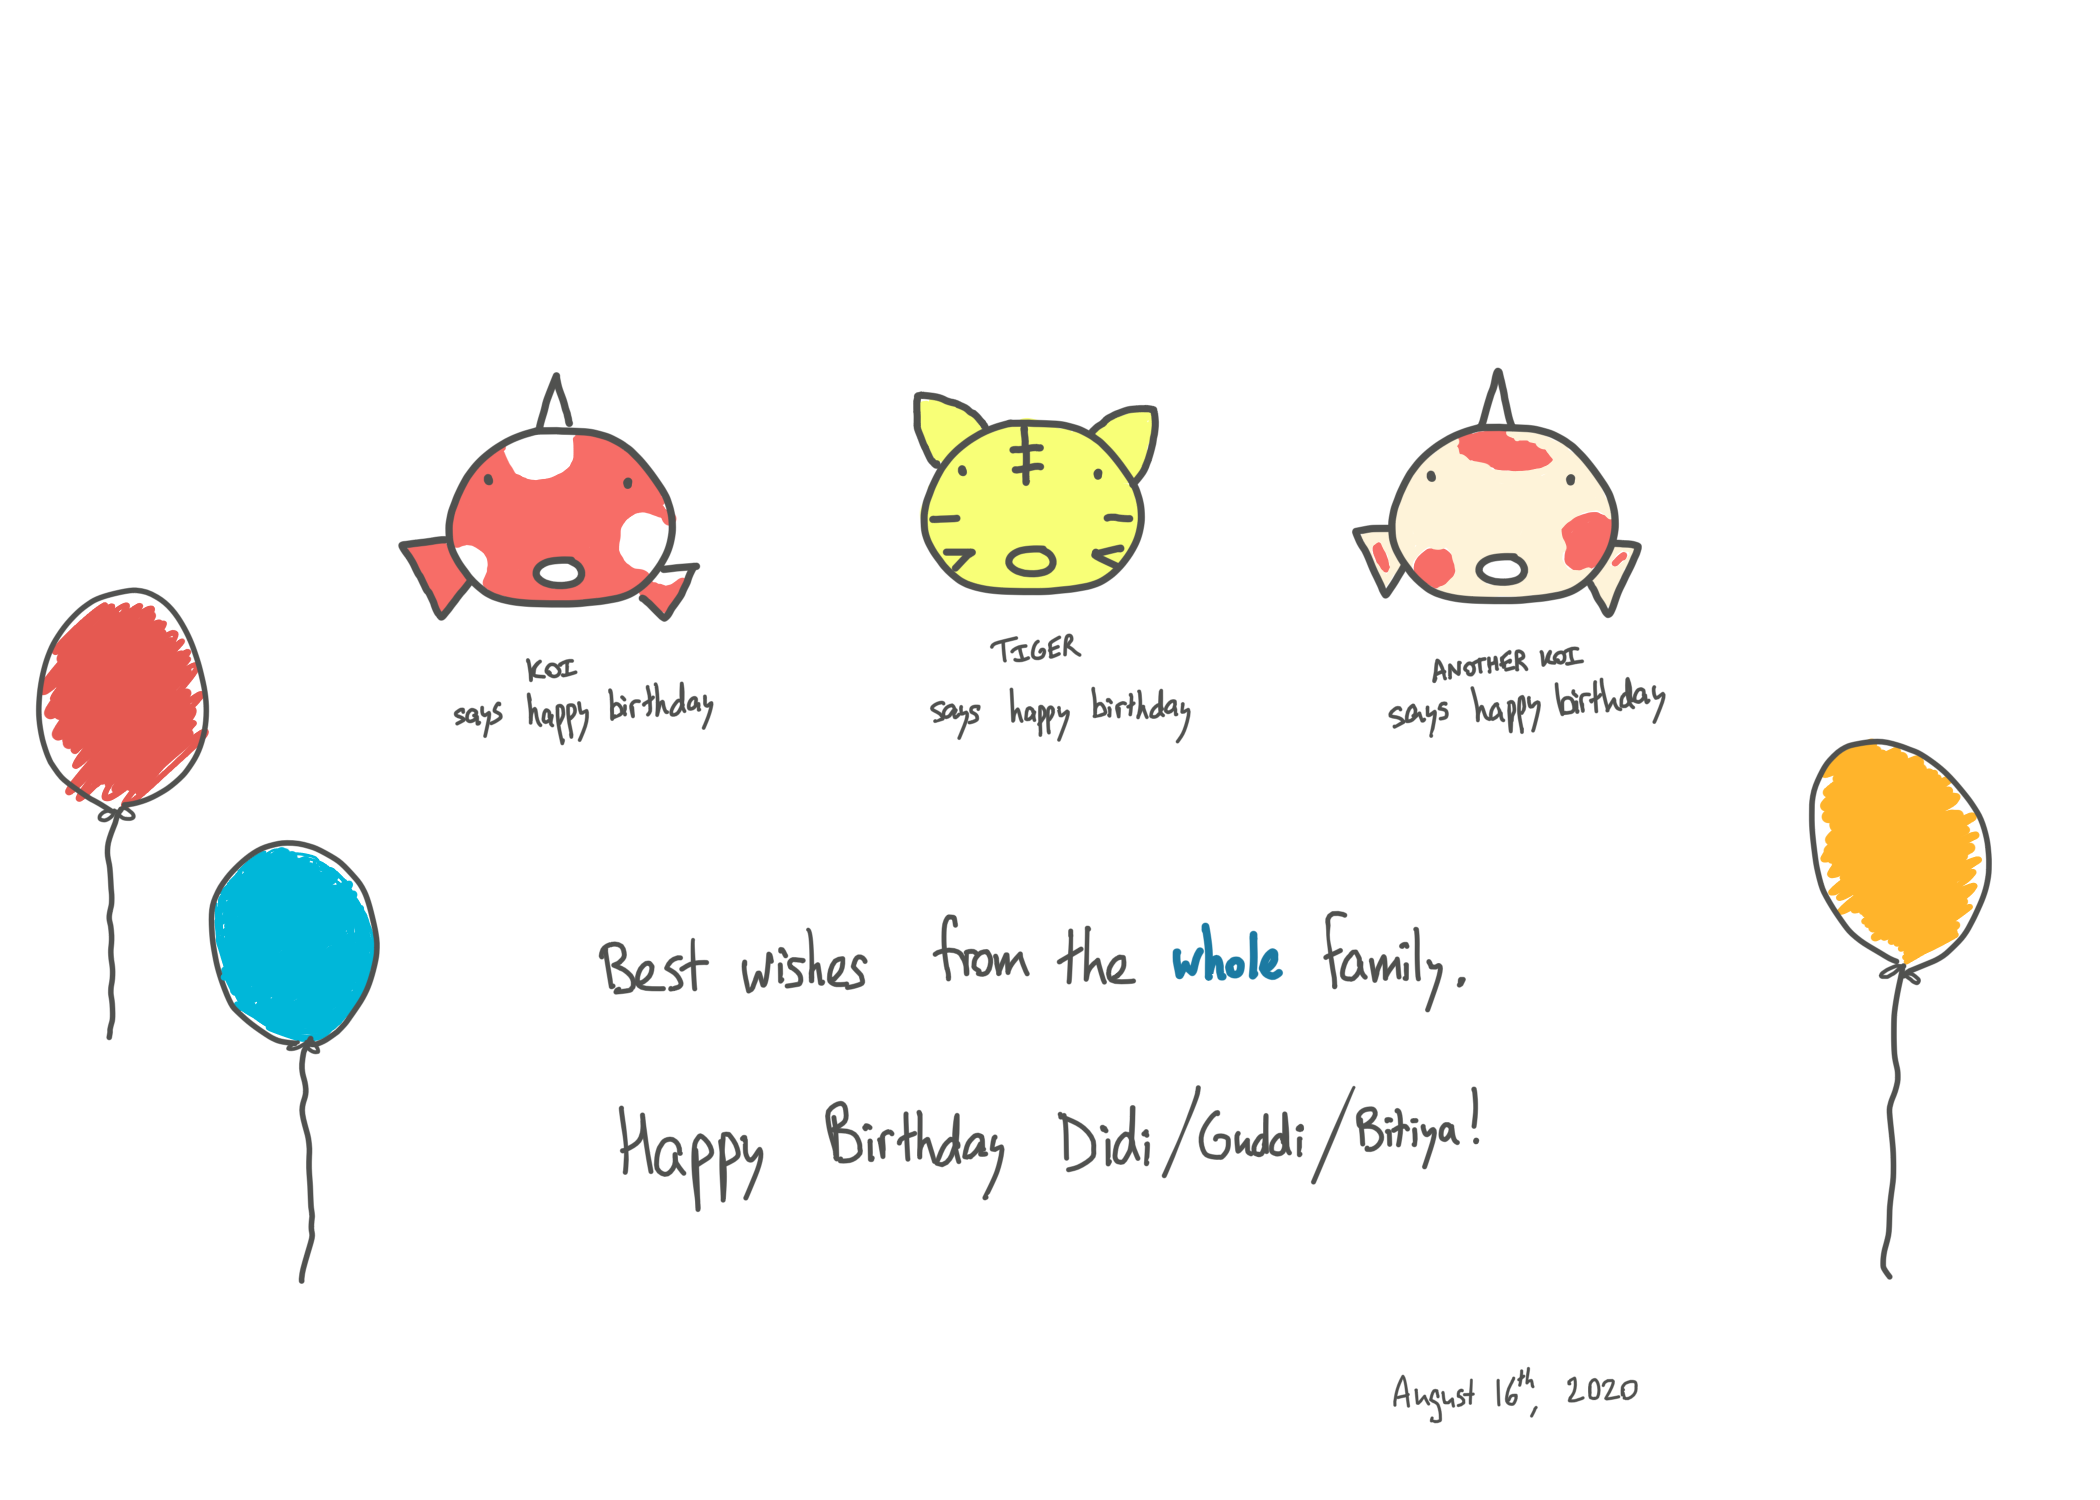 KOI
says happy birthday
TIGER
says happy birthday
ANOTHER KOI
says happy birthday
Best wishes from the whole family.
Happy Birthday Didi/Guddi/Bitiya!
August 16th, 2020